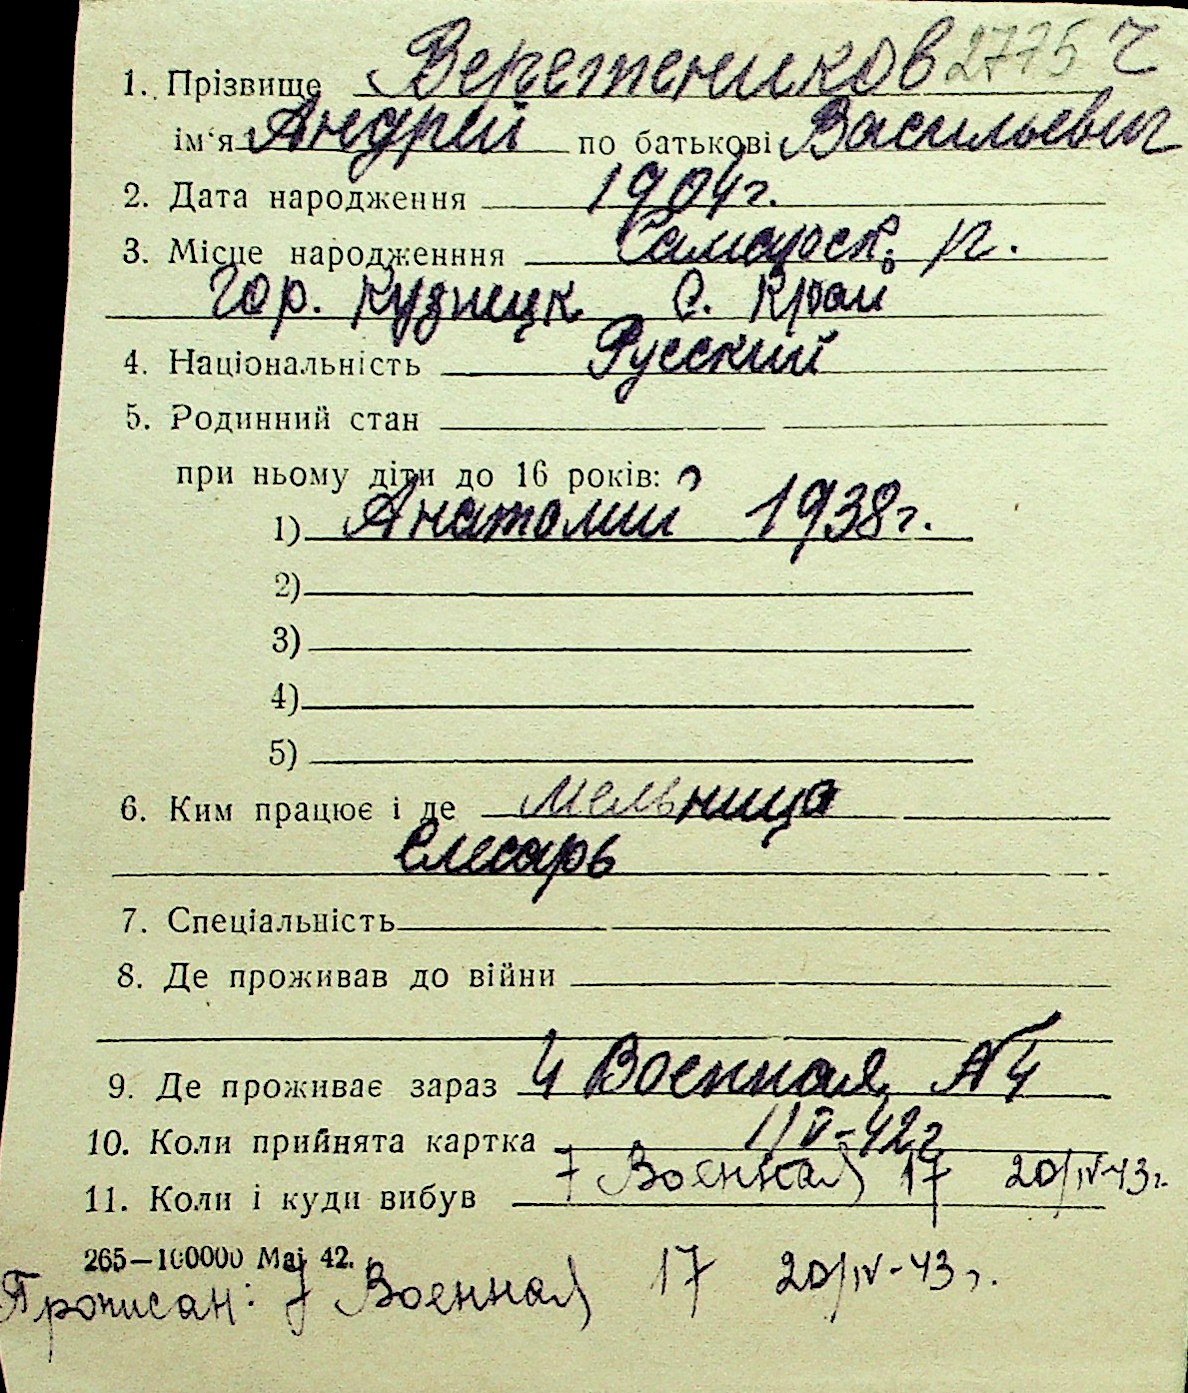 2775 Ч
1. Прізвище Веретеников
ім'я Андрей по батькові Васильевич
2. Дата народження 1904г.
3. Місце народженння Самарск. г.
гор. Кузнецк С. Край
4. Національність Русский
5. Родинний стан
при ньому діти до 16 років:
1) Анатолии 1938г.
2)
3)
4)
5)
6. Ким працює і де мельница
Слесарь
7. Спеціальність
8. Де проживав до війни
9. Де проживає зараз 4 Военная, №4
10. Коли прийнята картка 1/V-42г
11. Коли і куди вибув 7 Военная 17 20/IV-43г.
265—100000 Маj 42.
Прописан: 7 Военная 17 20/IV-43г.